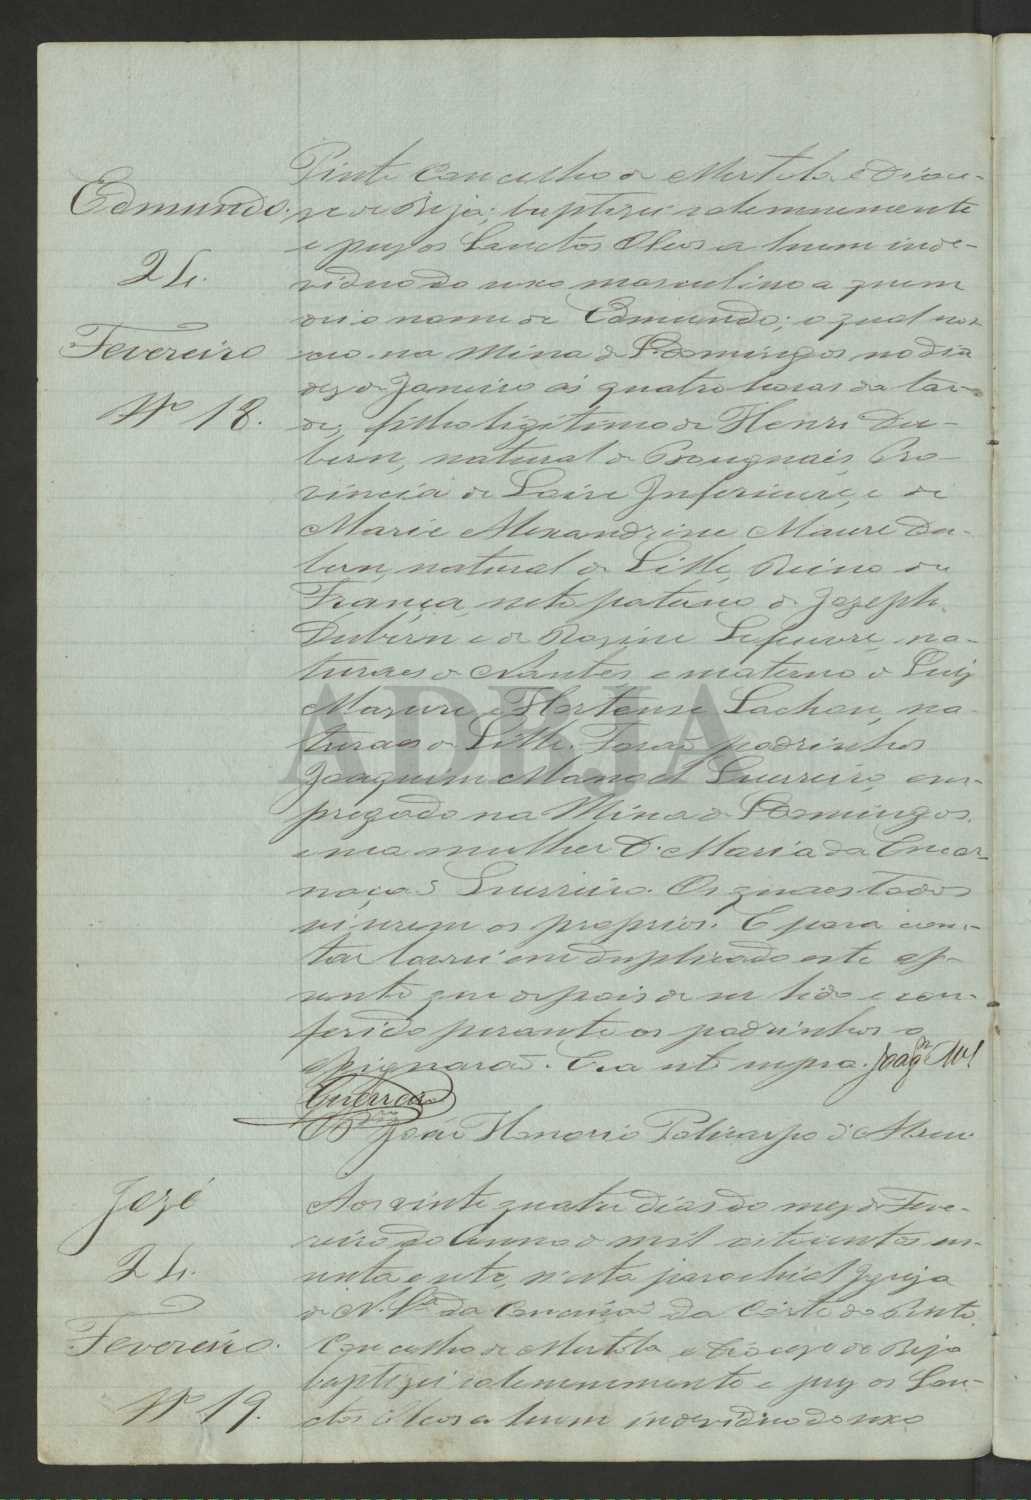 Edmundo.
24.
Fevereiro
Nº 18.
Pinto Concelho de Mertola e Dioce-
se de Beja; baptizei solemnemente
e puz os Sanctos Oleos a hum inde-
viduo do sexo masculino a quem
dei o nome de Edmundo; o qual nas-
ceo na Mina de S. Domingos no dia
dez de Janeiro ás quatro horas da tar-
de, filho legitimo de Henri Du-
bern, natural de Bougnais, Pro-
vincia de Loire Inferieure, e de
Marie Alexandrine Mazure Du-
bern, natural de Lille, Reino de
França, neto paterno de Jozeph
Dubern e de Rozine Lefeuvre, na-
turaes de Nantes, e materno de Luiz
Mazure e Hortense Lachou, na-
turaes de Lille. Forão padrinhos
Joaquim Manoel Guerreiro, em-
pregado na Mina de S. Domingos,
e sua mulher D. Maria da Encar-
nação Guerreiro. Os quaes todos
vi serem os proprios. E para cons-
tar lavrei em duplicado este as-
sento que depois de ser lido e con-
ferido perante os padrinhos o
assignarão. Era ut supra. Joaqm Ml
Guerreiro
O Pr João Honorio Policarpo d'Abreu.
Jozé
24.
Fevereiro.
Nº 19.
Aos vinte quatro dias do mez de Feve-
reiro do anno de mil oitocentos se-
senta e sete, n'esta parochial Igreja
de N. Sra da Conceição da Côrte do Pinto
Concelho de Mertola e Diocese de Beja
baptizei solemnemente e puz os San-
ctos Oleos a hum individuo do sexo
ADBJA